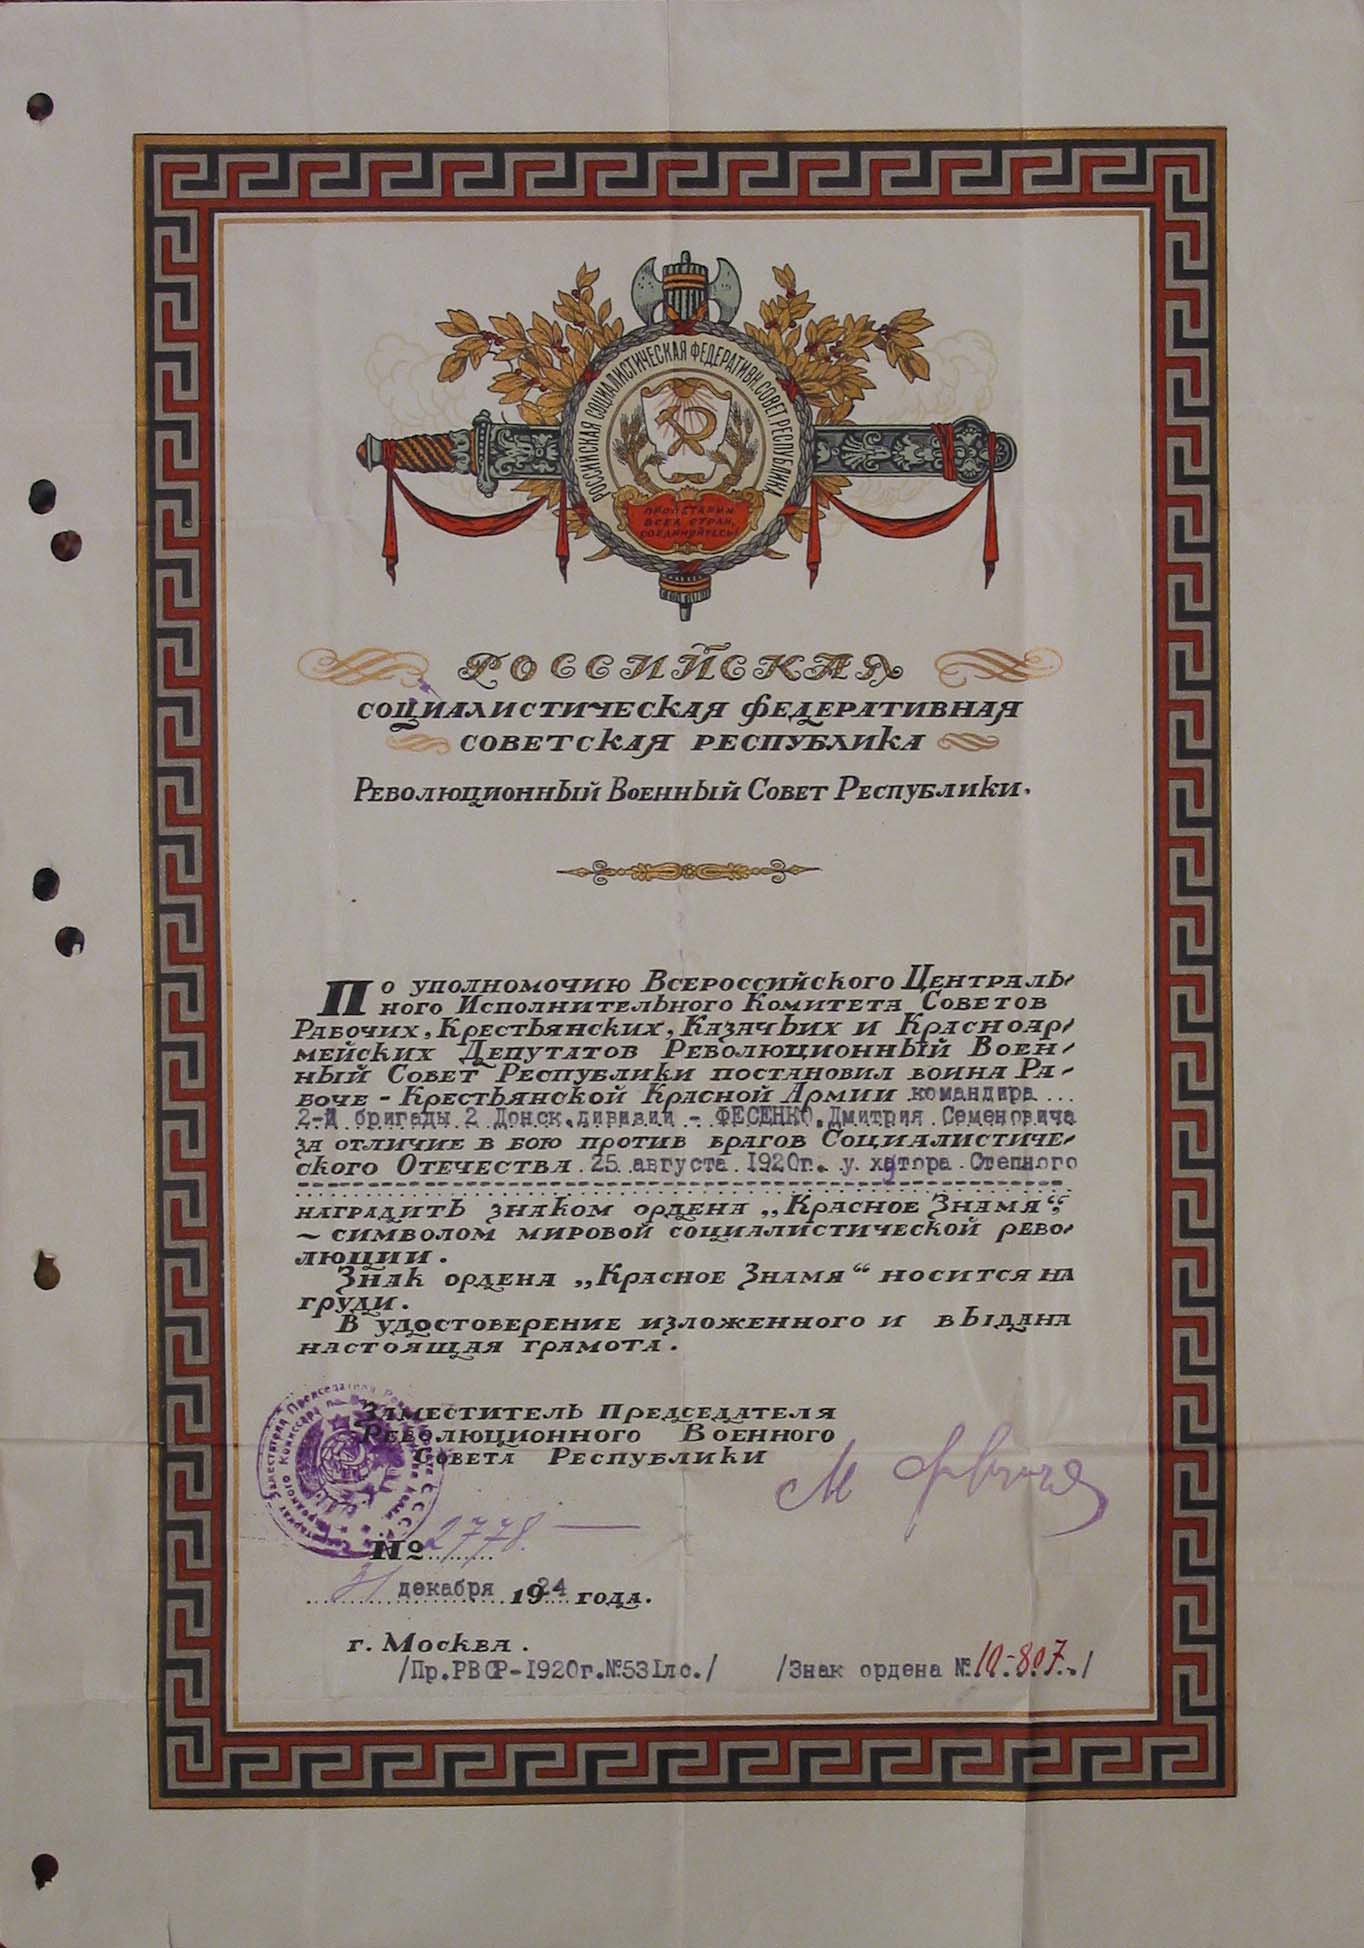 РОССИЙСКАЯ СОЦИАЛИСТИЧЕСКАЯ ФЕДЕРАТИВН. СОВЕТ. РЕСПУБЛИКА
ПРОЛЕТАРИИ
ВСЕХ СТРАН,
СОЕДИНЯЙТЕСЬ!
РОССИЙСКАЯ
СОЦИАЛИСТИЧЕСКАЯ ФЕДЕРАТИВНАЯ
СОВЕТСКАЯ РЕСПУБЛИКА
Революционный Военный Совет Республики.
По уполномочию Всероссийского Централь-
ного Исполнительного Комитета Советов
Рабочих, Крестьянских, Казачьих и Красноар-
мейских Депутатов Революционный Воен-
ный Совет Республики постановил воина Ра-
боче-Крестьянской Красной Армии командира
2-й бригады 2 Донск.дивизии - ФЕСЕНКО, Дмитрия Семеновича
за отличие в бою против врагов Социалистиче-
ского Отечества 25 августа 1920г. у хутора Степного
наградить знаком ордена „Красное Знамя“,
~ символом мировой социалистической рево-
люции.
Знак ордена „Красное Знамя“ носится на
груди.
В удостоверение изложенного и выдана
настоящая грамота.
Заместитель Председателя
Революционного Военного
Совета Республики
М Фрунзе
№ 2778.
31 декабря 1924 года.
г. Москва.
/Пр.РВСР-1920г.№531лс./ /Знак ордена №10-807./